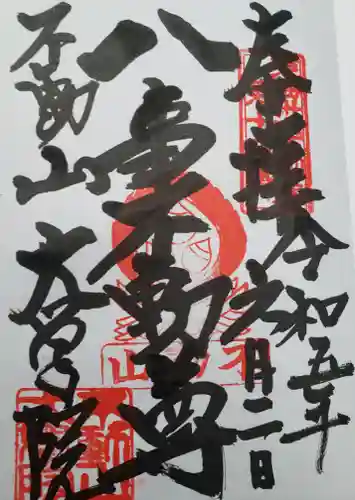 奉拝
令和五年
六月二日
八事不動尊
不動山
大学院